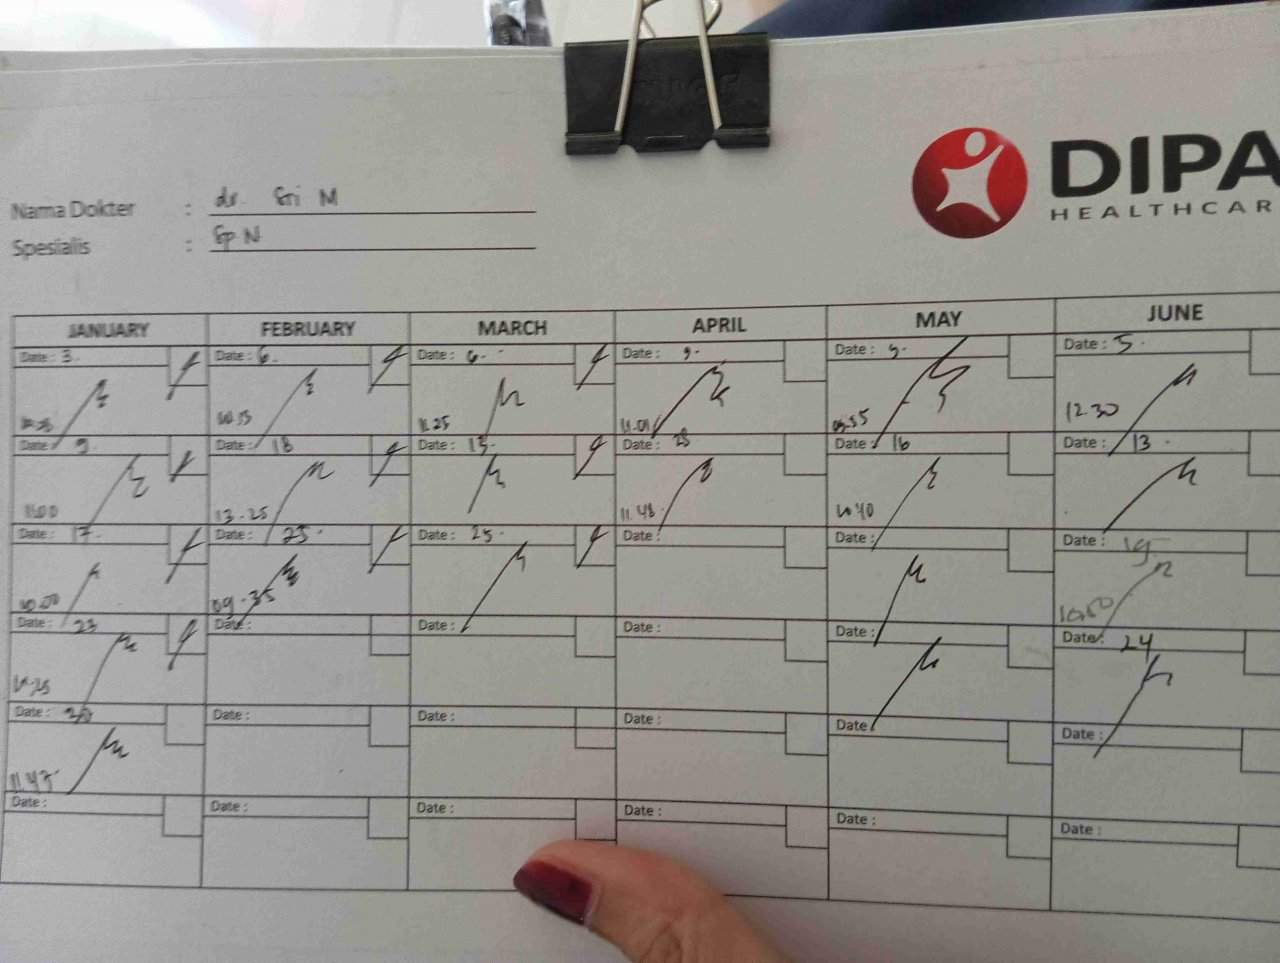 DIPA
HEALTHCAR
Nama Dokter : dr. Sri M
Spesialis : Sp N
JANUARY FEBRUARY MARCH APRIL MAY JUNE
Date : 3. Date : 6. Date : 6. Date : 9. Date : 5. Date : 5.
10.15 11.25 11.01 09.55 12.30
Date : 9. Date : 18 Date : 13. Date : 23 Date : 16 Date : 13.
11.00 13.25 11.48 10.40
Date : 17. Date : 25. Date : 25. Date : Date : Date : 19.
10.00 09.35 10.50
Date : 23 Date : Date : Date : Date : Date : 24
Date : Date : Date : Date : Date Date :
11.47
Date : Date : Date : Date : Date : Date :